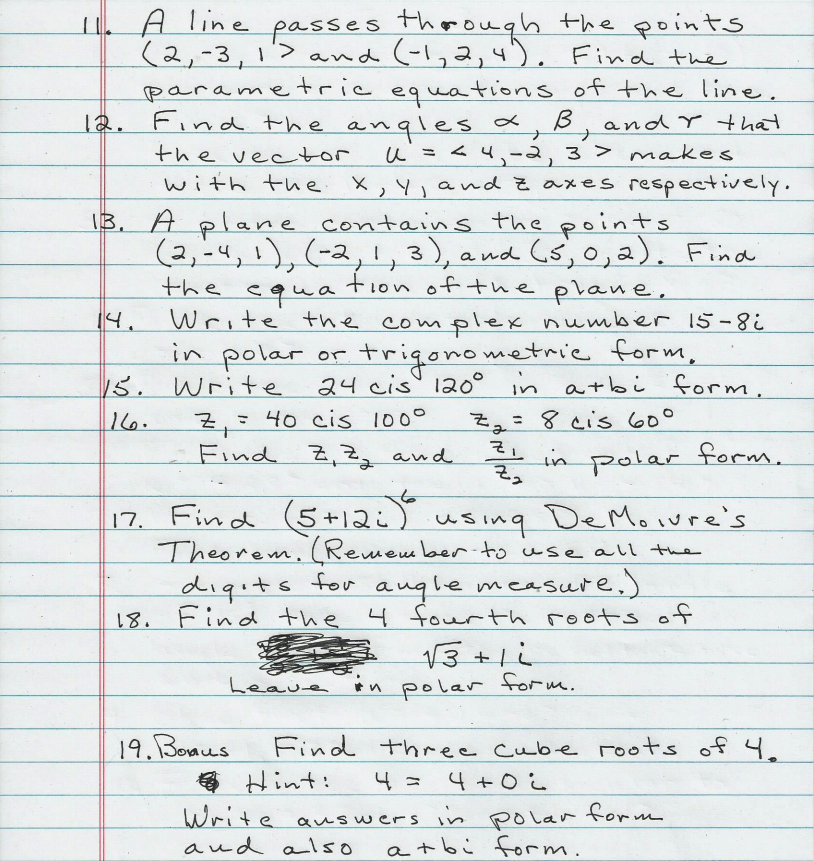 11. A line passes through the points
(2,-3, 1> and (-1, 2, 4). Find the
parametric equations of the line.
12. Find the angles α, β, and γ that
the vector u = < 4, -2, 3 > makes
with the x, y, and z axes respectively.
13. A plane contains the points
(2, -4, 1), (-2, 1, 3), and (5, 0, 2). Find
the equation of the plane.
14. Write the complex number 15-8i
in polar or trigonometric form.
15. Write 24 cis 120° in a+bi form.
16. z₁ = 40 cis 100° z₂ = 8 cis 60°
Find z₁z₂ and z₁/z₂ in polar form.
17. Find (5+12i)⁶ using DeMoivre's
Theorem. (Remember to use all the
digits for angle measure.)
18. Find the 4 fourth roots of
√3 + 1i
Leave in polar form.
19. Bonus Find three cube roots of 4.
Hint: 4 = 4 + 0i
Write answers in polar form
and also a+bi form.